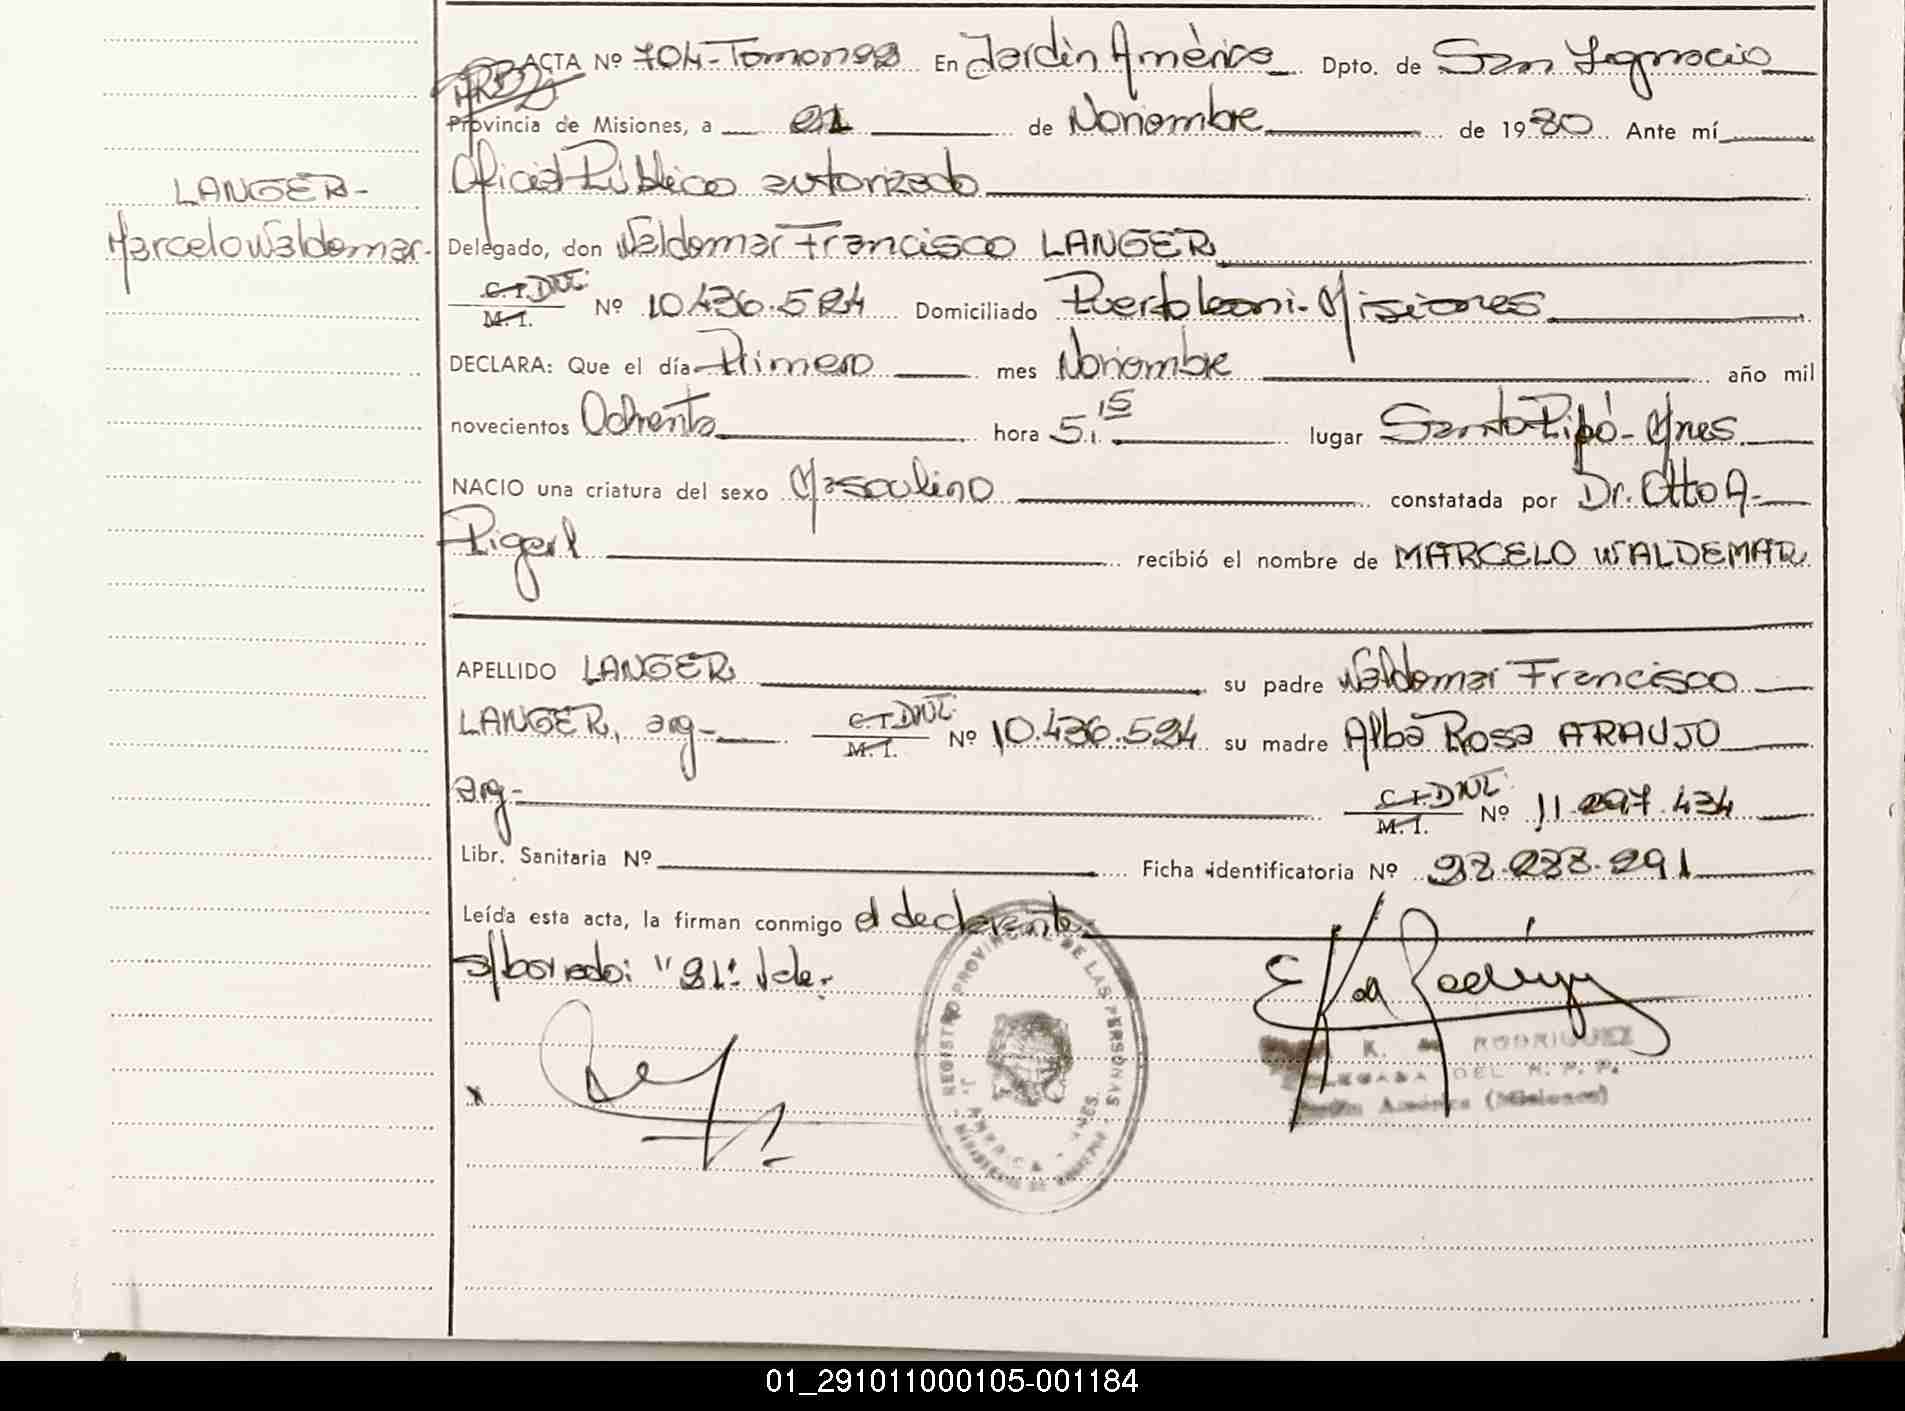 ACTA Nº 704-Tomo nº 2 En Jardín América Dpto. de San Ignacio
Provincia de Misiones, a 21 de Noviembre de 1980 Ante mí
Oficial Público autorizado
LANGER-
Marcelo Waldemar-
Delegado, don Waldemar Francisco LANGER
C.I. DNI. M.I. Nº 10.436.524 Domiciliado Puerto Leoni-Misiones
DECLARA: Que el día Primero mes Noviembre año mil
novecientos Ochenta hora 5,15 lugar Santo Pipó-Mnes
NACIO una criatura del sexo Masculino constatada por Dr. Otto A-
recibió el nombre de MARCELO WALDEMAR
APELLIDO LANGER su padre Waldemar Francisco
LANGER, arg- C.I. DNI. M.I. Nº 10.436.524 su madre Alba Rosa ARAUJO
arg- C.I. DNI. M.I. Nº 11.297.434
Libr. Sanitaria Nº Ficha identificatoria Nº 28.288.291
Leída esta acta, la firman conmigo el declarante
s/borrado: "21": Vale.-
REGISTRO PROVINCIAL DE LAS PERSONAS
J. AMERICA - MNES.
MINISTERIO DE GOBIERNO
K. de RODRIGUEZ
DELEGADA DEL R. P. P.
Jardín América (Misiones)
01_291011000105-001184